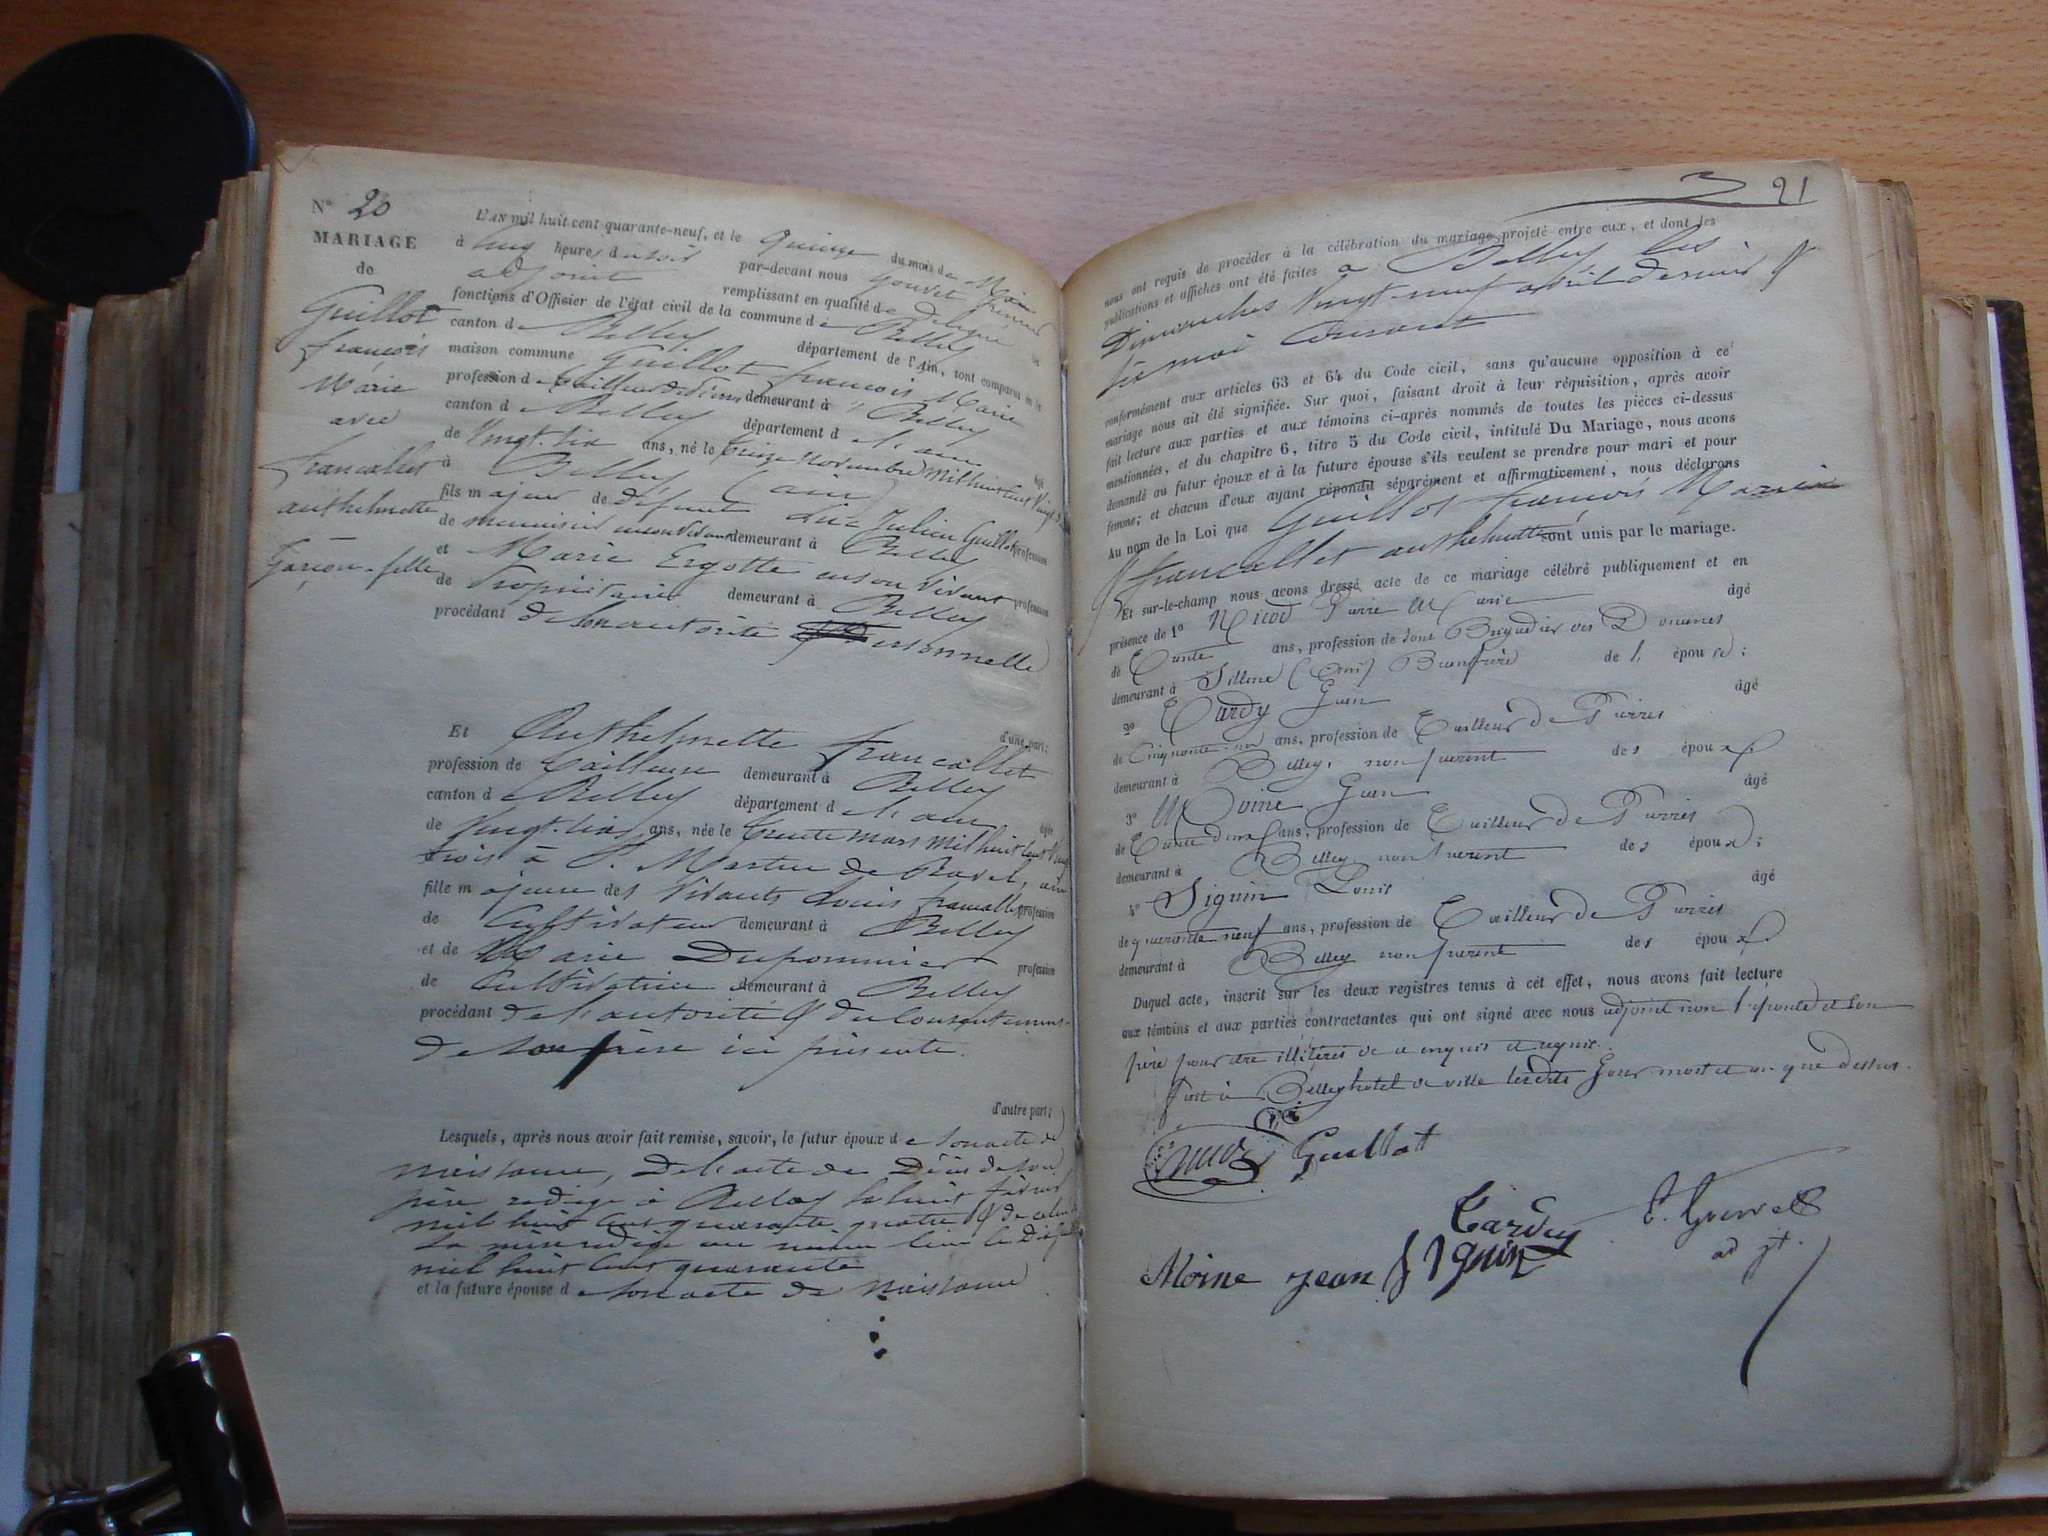 N° 20
MARIAGE
de
Guillot
françois
Marie
avec
francallet
anthelmette
Garçon - fille
L'AN mil huit cent quarante-neuf, et le quinze du mois de Mai
à cinq heures du soir par-devant nous Gouvet premier
adjoint remplissant en qualité de délégué les
fonctions d'Offisier de l'état civil de la commune de Belley
canton de Belley département de l'Ain, sont comparus en la
maison commune Guillot françois Marie
profession de tailleur de Pierres demeurant à Belley
canton de Belley département de l'ain âgé
de Vingt-six ans, né le treize novembre mil huit cent vingt
à Belley (ain)
fils majeur de défunt Julien Guillot profession
de menuisier en son vivant demeurant à Belley
et Marie Ergotte en son Vivant profession
de Propriétaire demeurant à Belley
procédant de son autorité Personnelle
d'une part;
Et Anthelmette francallet
profession de tailleuse demeurant à Belley
canton de Belley département de l'ain âgée
de Vingt-six ans, née le trente mars mil huit cent Vingt
trois à St. Martin de Bavel, ain
fille majeure des Vivants Louis francallet profession
de Cultivateur demeurant à Belley
et de Marie Dupommier profession
de Cultivatrice demeurant à Belley
procédant de l'autorité & du consentement
de son père ici présente.
d'autre part;
Lesquels, après nous avoir fait remise, savoir, le futur époux de son acte de
naissance, de l'acte de Décès de son
père rédigé à Belley le huit février
mil huit cent quarante quatre & de celui de
sa mère rédigé au même lieu le Dix
mil huit cent quarante
et la future épouse de son acte de Naissance
21
nous ont requis de procéder à la célébration du mariage projeté entre eux, et dont les
publications et affiches ont été faites à Belley les
Dimanches Vingt-neuf avril dernier &
six mai Courant
conformément aux articles 63 et 64 du Code civil, sans qu'aucune opposition à ce
mariage nous ait été signifiée. Sur quoi, faisant droit à leur réquisition, après avoir
fait lecture aux parties et aux témoins ci-après nommés de toutes les pièces ci-dessus
mentionnées, et du chapitre 6, titre 5 du Code civil, intitulé Du Mariage, nous avons
demandé au futur époux et à la future épouse s'ils veulent se prendre pour mari et pour
femme; et chacun d'eux ayant répondu séparément et affirmativement, nous déclarons
Au nom de la Loi que Guillot françois Marie
& francallet anthelmette sont unis par le mariage.
Et sur-le-champ nous avons dressé acte de ce mariage célébré publiquement et en
présence de 1° Nicod Pierre Marie âgé
de Trente ans, profession de sous Brigadier des Douanes
demeurant à Beaufrère de l'épouse;
2° Tardy Jean âgé
de Cinquante ans, profession de Tailleur de Pierres
demeurant à Belley, non parent des époux
3° Moine Jean âgé
de Trente ans, profession de Tailleur de Pierres
demeurant à Belley non parent des époux;
4° Signin Louis âgé
de quarante neuf ans, profession de Tailleur de Pierres
demeurant à Belley non parent des époux.
Duquel acte, inscrit sur les deux registres tenus à cet effet, nous avons fait lecture
aux témoins et aux parties contractantes qui ont signé avec nous adjoint non l'épouse et son
père pour être illitérés de ce enquis et requis.
Fait à Belley hotel de ville lesdits Jour mois et an que dessus.
Nicod Guillot
Tardy E. Gouvet
adjt.
Moine jean Signin